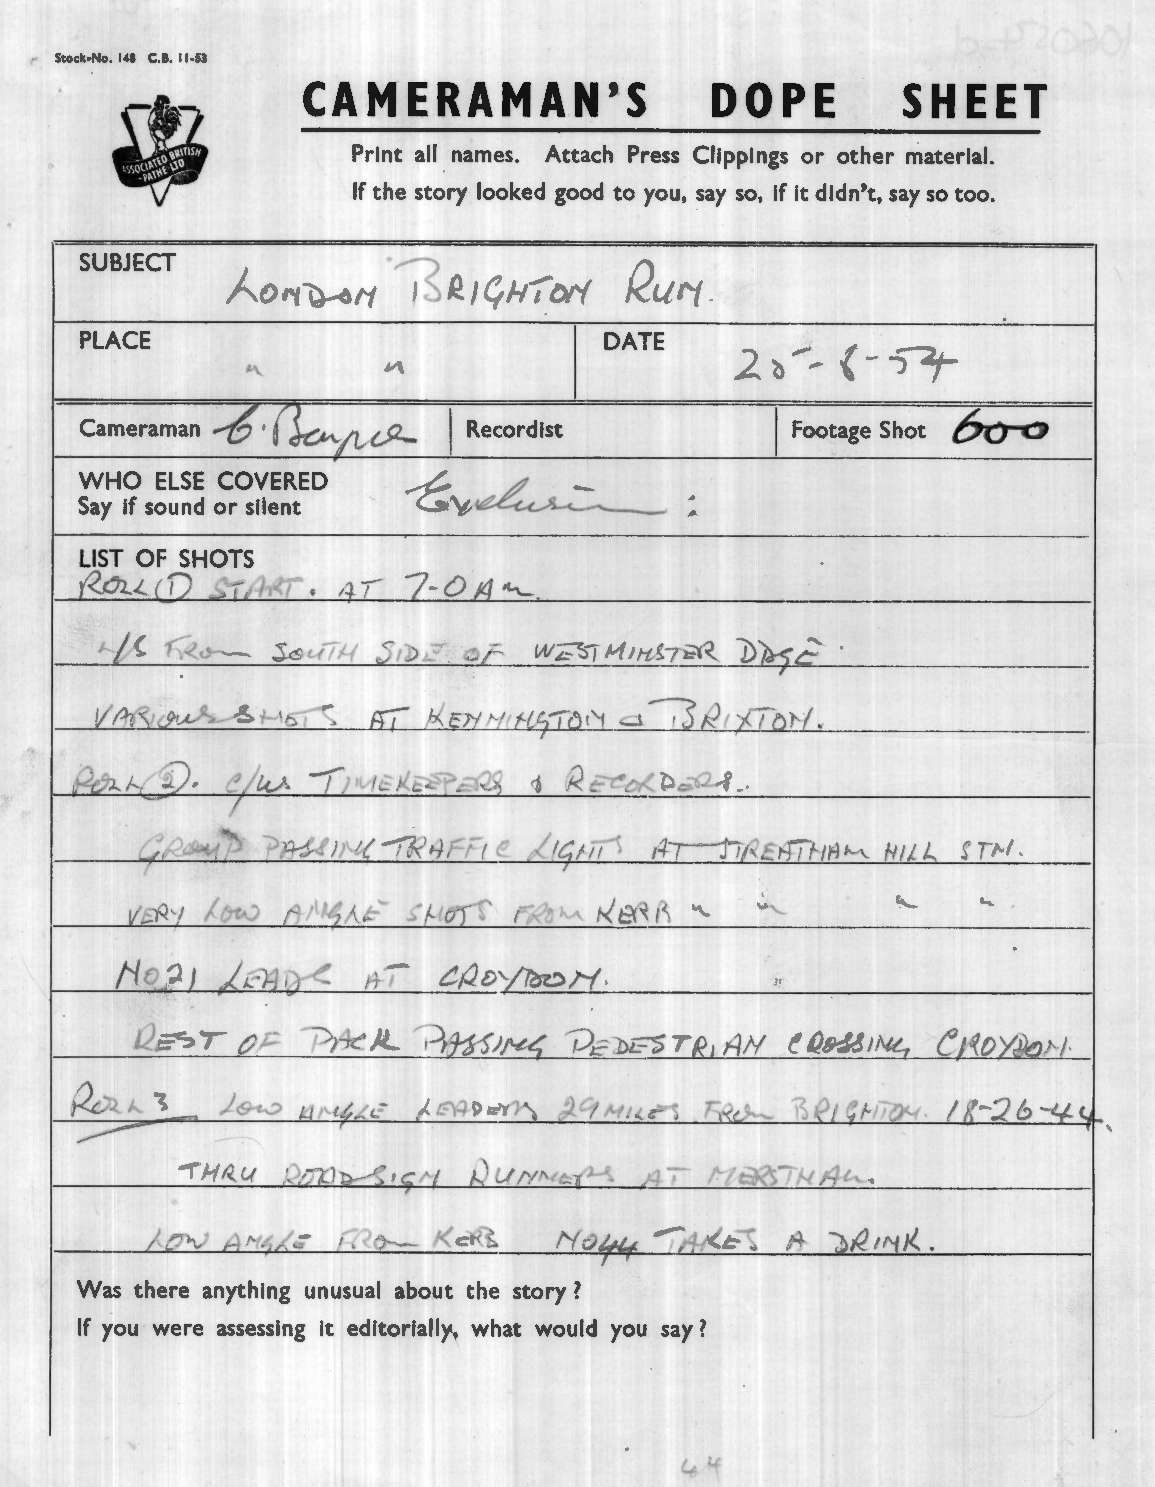 Stock-No. 148 C.B. 11-53
ASSOCIATED BRITISH
-PATHE LTD
CAMERAMAN'S DOPE SHEET
Print all names. Attach Press Clippings or other material.
If the story looked good to you, say so, if it didn't, say so too.
SUBJECT LONDON BRIGHTON RUN.
PLACE " " DATE 25-8-54
Cameraman Recordist Footage Shot 600
WHO ELSE COVERED Exclusive :
Say if sound or silent
LIST OF SHOTS
ROLL ① START. AT 7-0 AM.
L/S FROM SOUTH SIDE OF WESTMINSTER BDGE
VARIOUS SHOTS AT KENNINGTON & BRIXTON.
ROLL ②. C/US TIMEKEEPERS & RECORDERS.
GROUP PASSING TRAFFIC LIGHTS AT STREATHAM HILL STN.
VERY LOW ANGLE SHOTS FROM KERB " " " "
NO 21 LEADS AT CROYDON.
REST OF PACK PASSING PEDESTRIAN CROSSING CROYDON.
ROLL 3 LOW ANGLE LEADERS 29 MILES FROM BRIGHTON. 18-26-44.
THRU ROADSIGN RUNNERS AT MERSTHAM.
LOW ANGLE FROM KERB NO 44 TAKES A DRINK.
Was there anything unusual about the story?
If you were assessing it editorially, what would you say?
44